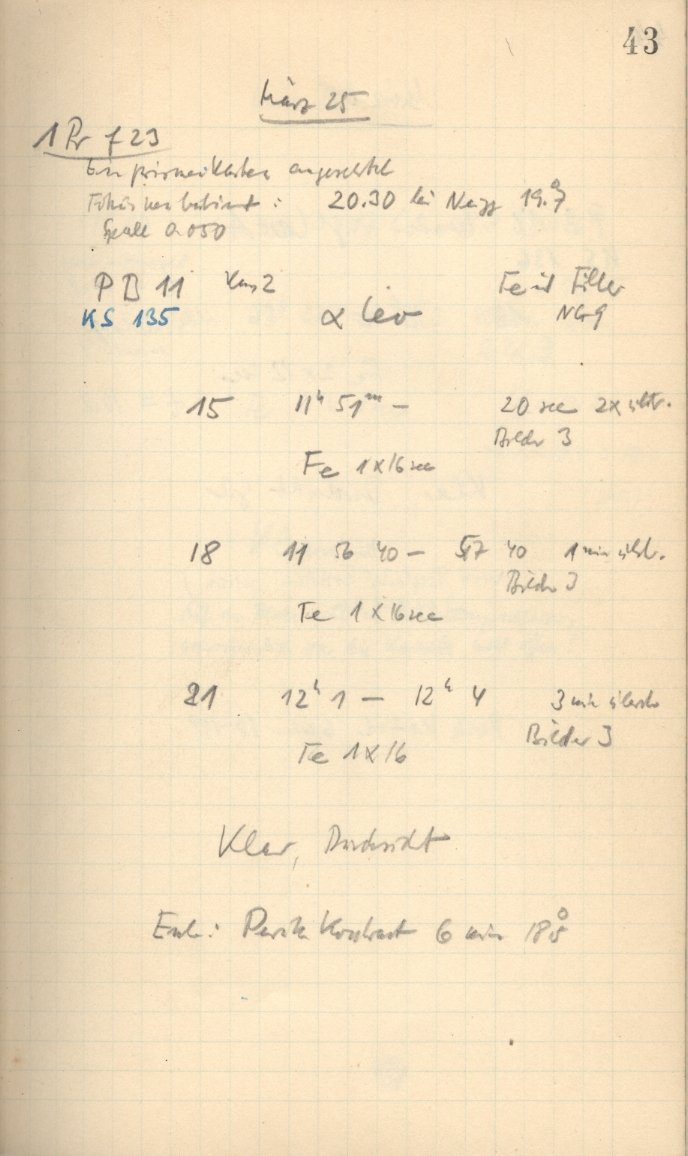 43
März 25
1 Pr f 23
Ein prismenkasten angesetzt
Fokus neu bestimmt: 20.30 bei Neigg 19.°7
Spalt 0.050
PB 11 Kas 2 Fe mit Filter
KS 135 α Leo NG 9
15 11ʰ 51ᵐ – 20 sec 2x übstr.
Bilder 3
Fe 1 x 16 sec
18 11 56 40 – 57 40 1 min übstr.
Bilder 3
Fe 1 x 16 sec
21 12ʰ 1 – 12ʰ 4 3 min überstr
Bilder 3
Fe 1 x 16
Klar, Durchsicht
Entw: Kontrast 6 min 18°